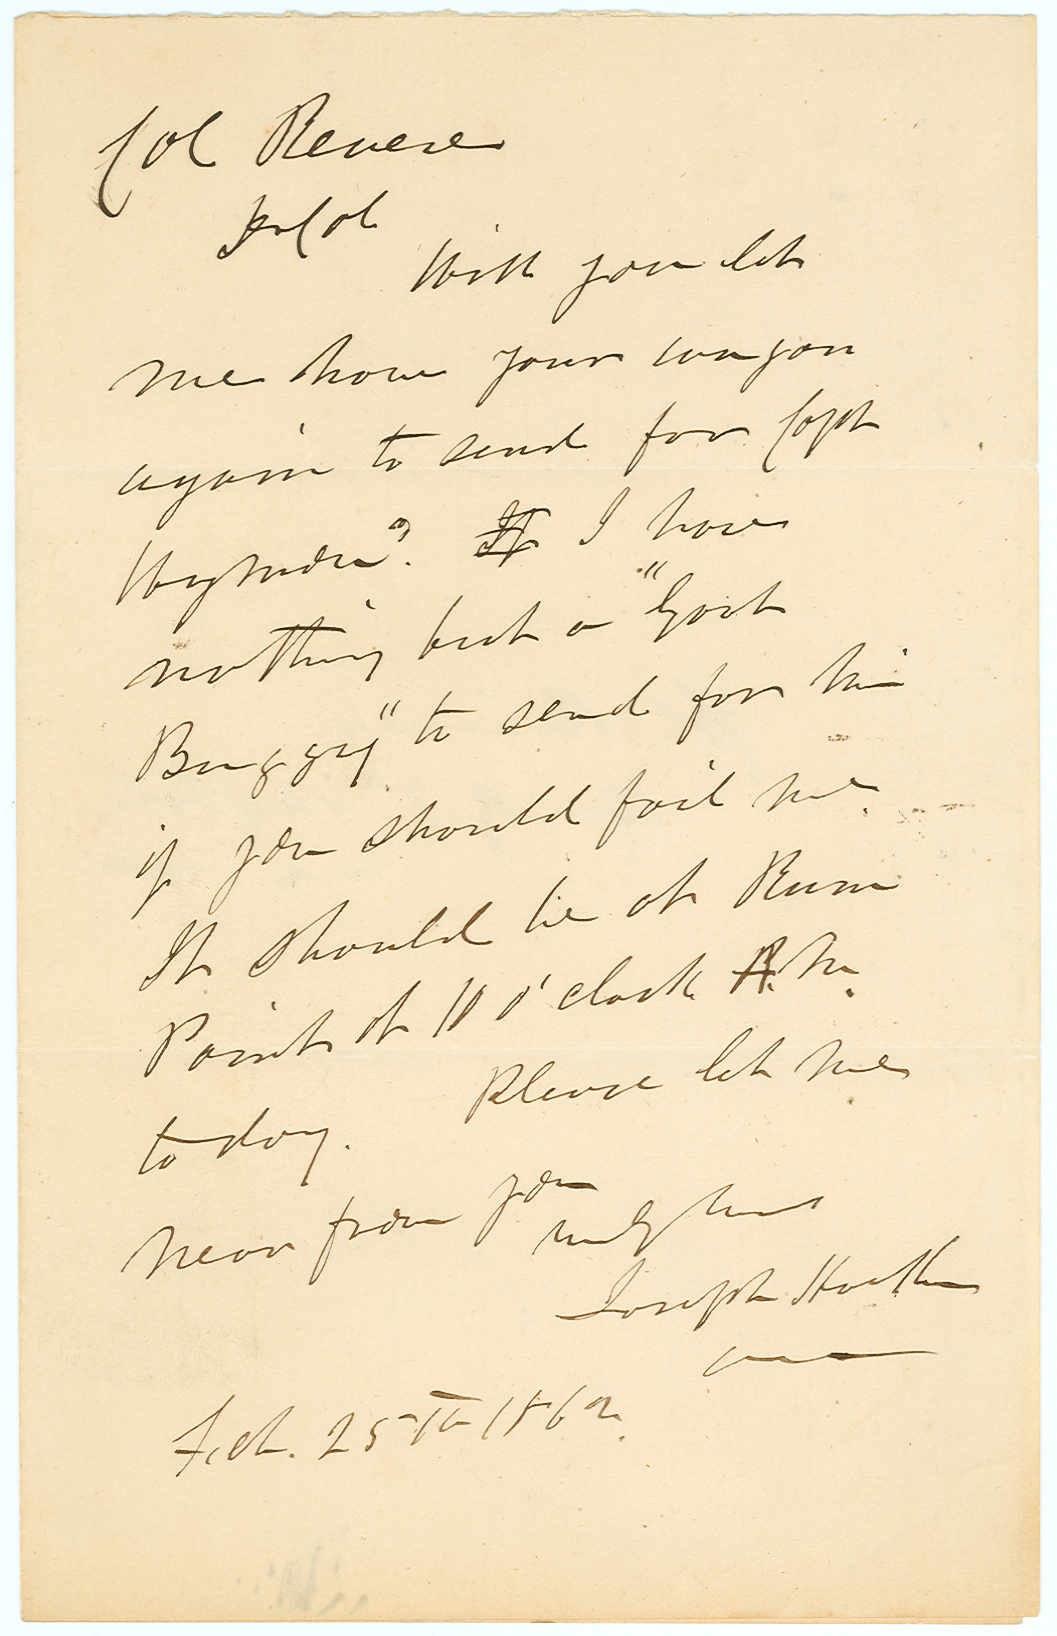 Col Revere
Dr Col
Will you let
me have your wagon
again to send for Capt
Wyman? I have
nothing but a "Goat
Buggy" to send for him
if you should fail me.
It should be at Rum
Point at 10 o'clock A.M.
to day. Please let me
hear from you
Joseph Hooker
Feb. 25th 1862.